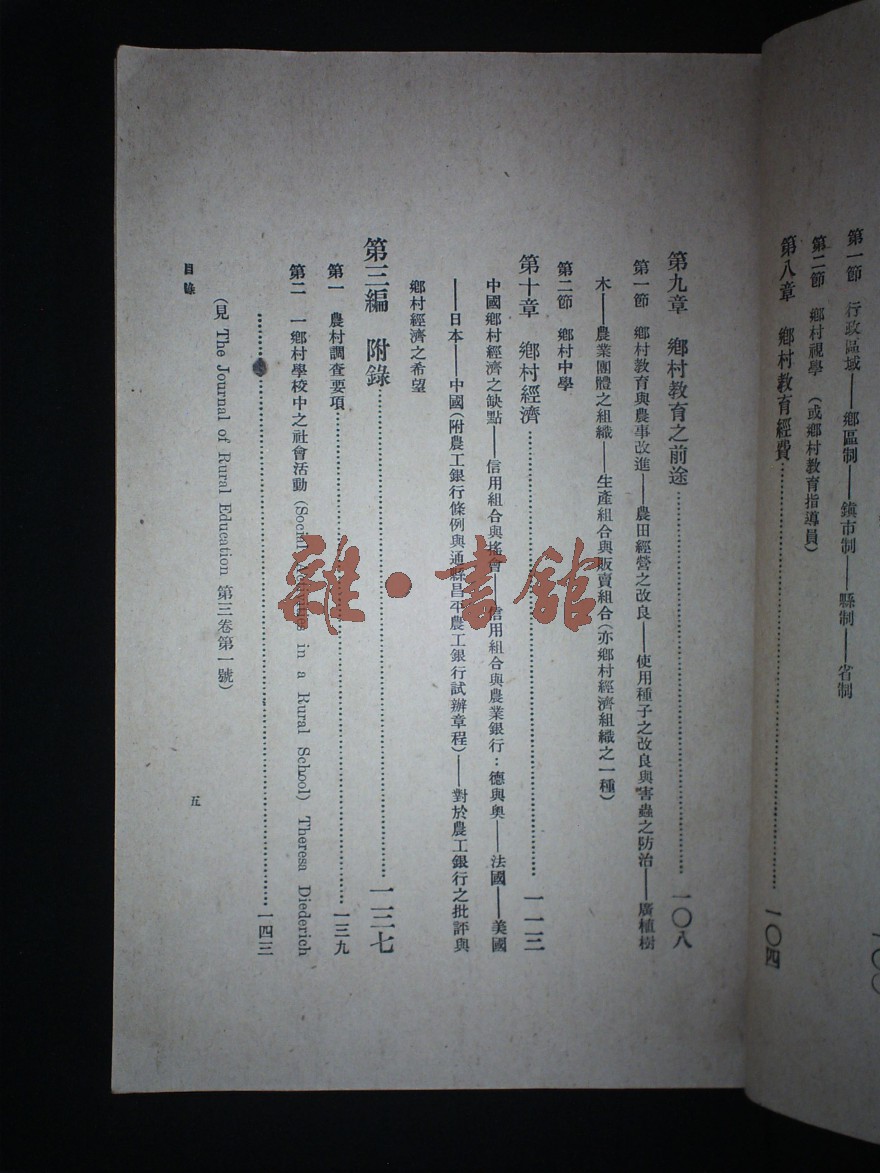 第一節 行政區域——鄉區制——鎮市制——縣制——省制
第二節 鄉村視學 (或鄉村教育指導員)
第八章 鄉村教育經費……一〇四
第九章 鄉村教育之前途……一〇八
第一節 鄉村教育與農事改進——農田經營之改良——使用種子之改良與害蟲之防治——廣植樹
木——農業團體之組織——生產組合與販賣組合(亦鄉村經濟組織之一種)
第二節 鄉村中學
第十章 鄉村經濟……一一三
中國鄉村經濟之缺點——信用組合與搖會——信用組合與農業銀行:德與奧——法國——美國
——日本——中國(附農工銀行條例與通縣昌平農工銀行試辦章程)——對於農工銀行之批評與
鄉村經濟之希望
第三編 附錄……一三七
第一 農村調查要項……一三九
第二 一鄉村學校中之社會活動 (Social Activities in a Rural School) Theresa Diederich
……一四三
(見 The Journal of Rural Education 第三卷第一號)
目錄
五
雜·書館